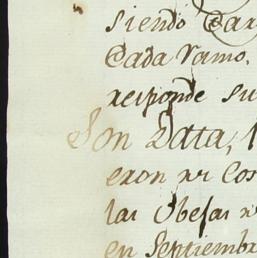 siendo Car
Cada ramo.
responde su
Son Data, 1
eron
las Obejas
en Septiembr